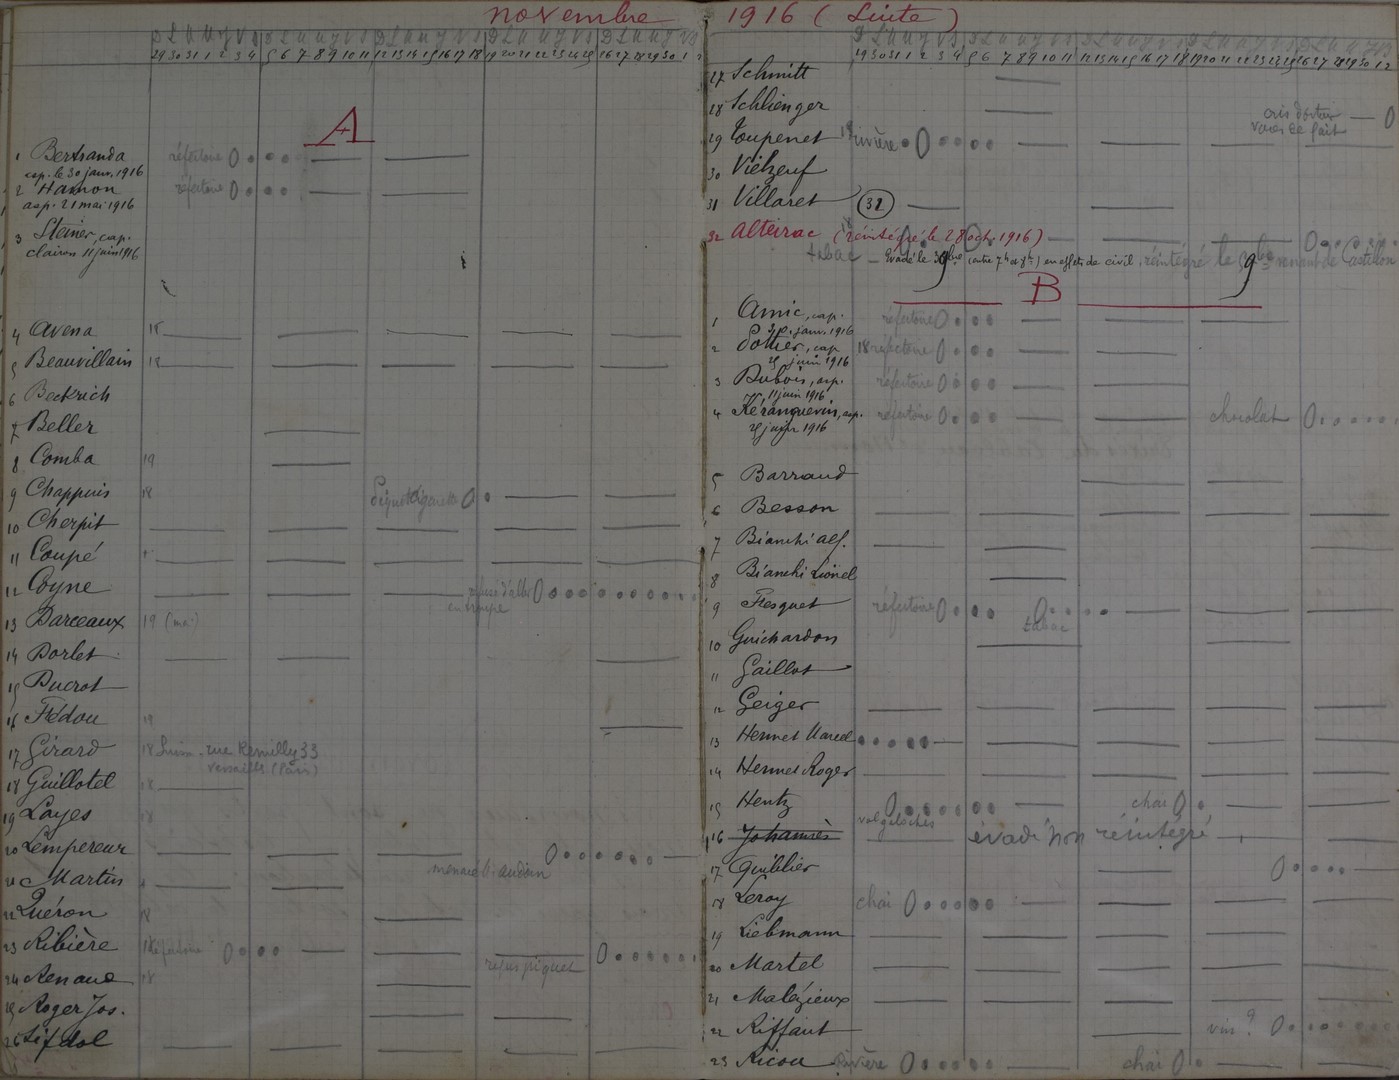 novembre 1916 (Suite)
D L M M J V S D L M M J V S D L M M J V S D L M M J V S D L M M J V S
29 30 31 1 2 3 4 5 6 7 8 9 10 11 12 13 14 15 16 17 18 19 20 21 22 23 24 25 26 27 28 29 30 1 2
A
1 Bertranda réfectoire
cap. le 30 janv. 1916
2 Hamon réfectoire
asp. 21 mai 1916
3 Steiner, cap.
clairon 11 juin 1916
4 Avena 18
5 Beauvillain 18
6 Beckrich
7 Beller
8 Comba 19
9 Chappuis 18
10 Cherpit
11 Coupé
12 Coyne refus d'aller
en
13 Darceaux 19 (mai)
14 Dorlet
15 Ducrot
16 Fédou 18
17 Girard 18 rue Remilly 33
Versailles (Paris)
18 Guillotel 18
19 Layes 18
20 Lempereur
21 Martin menace
22 Quéron 18
23 Ribière 18 réfectoire refus piquet
24 Renaud 18
25 Roger Jos.
26 Sifdol
D L M M J V S D L M M J V S D L M M J V S D L M M J V S D L M M J V S
29 30 31 1 2 3 4 5 6 7 8 9 10 11 12 13 14 15 16 17 18 19 20 21 22 23 24 25 26 27 28 29 30 1 2
27 Schmitt
28 Schlienger
29 Toupenet 18 rivière voies de fait
30 Vielzeuf
31 Villaret 32
32 Alteirac (réintégré le 28 oct. 1916)
tabac — Evadé le 3 9bre (entre 7h et 8h) en effets de civil, réintégré le 9bre venant de Castillon
B
1 Amic, cap. réfectoire
30 janv. 1916
2 Pottier, cap 18 réfectoire
25 juin 1916
3 Dubois, asp. réfectoire
11 juin 1916
4 Kéranguevin, asp. réfectoire chocolat
25 1916
5 Barraud
6 Besson
7 Bianchi Alf.
8 Bianchi Lionel
9 Fesquet réfectoire tabac
10 Guichardon
11 Gaillot
12 Geiger
13 Hennet Marcel
14 Hennet Roger
15 Hentz vol galoches chai
16 Johannès évadé non réintégré
17 Quiblier
18 Leroy chai
19 Liebmann
20 Martel
21 Malézieux
22 Riffaut vin ?
23 Ricou Rivière chai